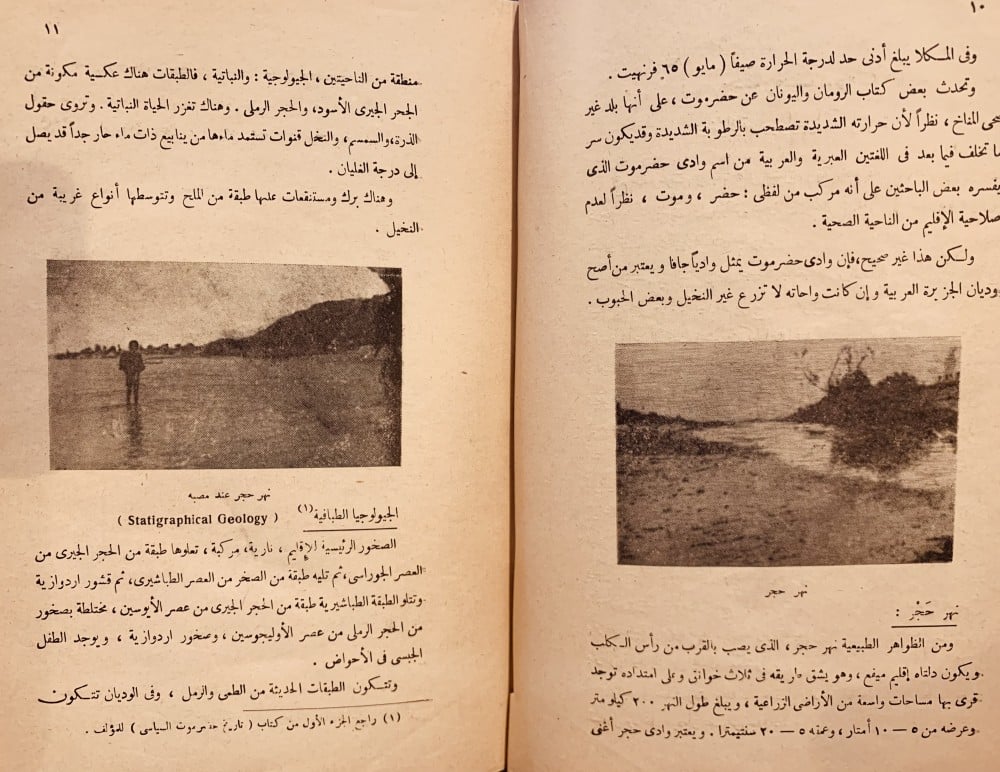 ١٠
وفى المكلا يبلغ أدنى حد لدرجة الحرارة صيفاً ( مايو ) ٦٥ فرنهيت .
وتحدث بعض كتاب الرومان واليونان عن حضرموت ، على أنها بلد غير
صحى المناخ ، نظراً لأن حرارته الشديدة تصطحب بالرطوبة الشديدة وقديكون سر
ما تخلف فيما بعد فى اللغتين العبرية والعربية من اسم وادى حضرموت الذى
يفسره بعض الباحثين على أنه مركب من لفظى : حضر ، وموت ، نظراً لعدم
صلاحية الإقليم من الناحية الصحية .
ولكن هذا غير صحيح،فإن وادى حضرموت يمثل وادياً جافا و يعتبر من أصح
وديان الجزيرة العربية و إن كانت واحاته لا تزرع غير النخيل وبعض الحبوب .
نهر حجر
نهر حَجْر :
ومن الظواهر الطبيعية نهر حجر ، الذى يصب بالقرب من رأس الكلب
و يكون دلتاه إقليم ميفع ، وهو يشق طريقه فى ثلاث خوانق وعلى امتداده توجد
قرى بها مساحات واسعة من الأراضى الزراعية ، و يبلغ طول النهر ٢٠٠ كيلو متر
وعرضه من ٥ — ١٠ أمتار ، وعمقه ٥ — ٢٠ سنتيمترا . و يعتبر وادى حجر أغنى
١١
منطقة من الناحيتين ، الجيولوجية : والنباتية ، فالطبقات هناك عكسية مكونة من
الحجر الجيرى الأسود، والحجر الرملى . وهناك تغزر الحياة النباتية . وتروى حقول
الذرة،والسمسم، والنخل قنوات تستمد ماءها من ينابيع ذات ماء حار جداً قد يصل
إلى درجة الغليان .
وهناك برك ومستنقعات عليها طبقة من الملح وتتوسطها أنواع غريبة من
النخيل .
نهر حجر عند مصبه
الجيولوجيا الطباقية (١) ( Statigraphical Geology )
الصخور الرئيسية للإقليم ، نارية، مركبة ، تعلوها طبقة من الحجر الجيرى من
العصر الجوراسى، ثم تليه طبقة من الصخر من العصر الطباشيرى، ثم قشور اردوازية
وتتلو الطبقة الطباشيرية طبقة من الحجر الجيرى من عصر الأيوسين ، مختلطة بصخور
من الحجر الرملى من عصر الأوليجوسين ، وصخور اردوازية ، و يوجد الطفل
الجبسى فى الأحواض .
وتتكون الطبقات الحديثة من الطمى والرمل ، وفى الوديان تتكون
(١) راجع الجزء الأول من كتاب ( تاريخ حضرموت السياسى ) للمؤلف .